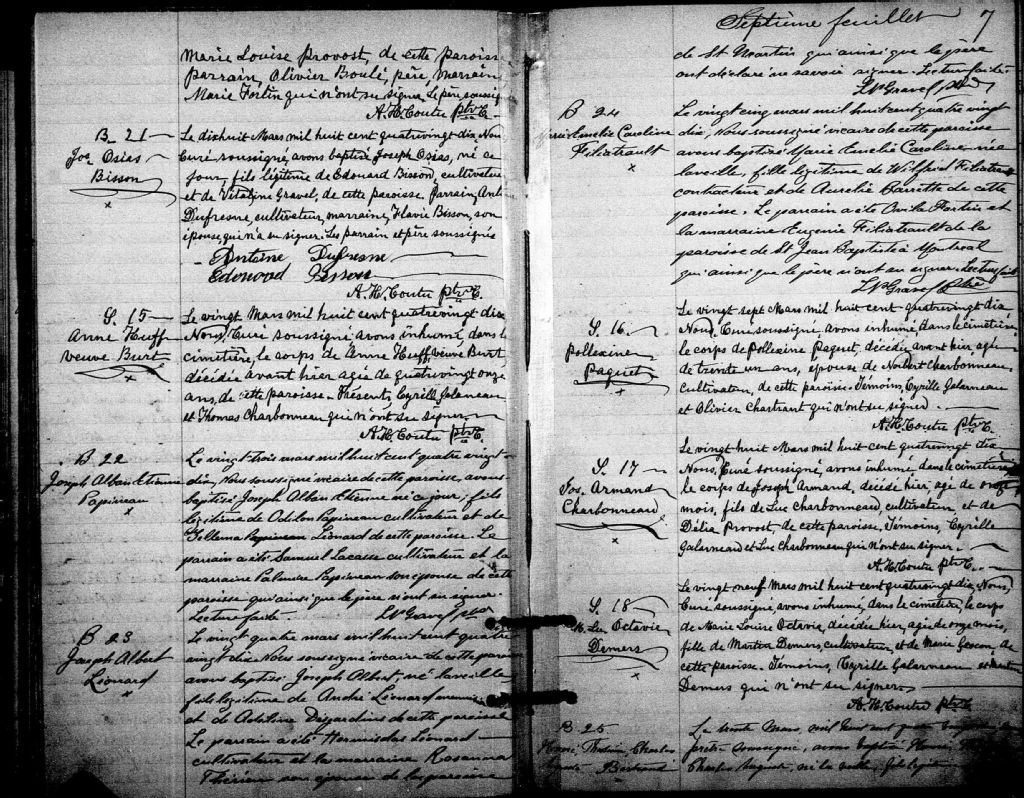 Marie Louise Provost, de cette paroiss
Parrain, Olivier Boulé, père, Marrain
Marie Fortin qui n'ont su signer. Le père soussig
A.H. Coutu ptre C.
B. 21
Jos Osias
Bisson
Le dixhuit Mars mil huit cent quatrevingt dix, Nou
Curé soussigné, avons baptisé Joseph Osias, né ce
jour, fils légitime de Edouard Bisson, cultivateur
et de Vitaline Gravel, de cette paroisse. Parrain, Ant
Dufresne, cultivateur, marraine, Flavie Bisson, son
épouse, qui n'a su signer. Les parrain et père soussignés
Antoine Dufresne
Edouood Bisson
A.H. Coutu ptre C.
S. 15
Anne Huff
veuve Burt
Le vingt Mars mil huit cent quatrevingt dix
Nous, Curé soussigné avons inhumé, dans le
cimetière, le corps de Anne Huff veuve Burt,
décédée avant hier agée de quatrevingt onze
ans, de cette paroisse. Présents, Cyrille Galarneau
et Thomas Charbonneau qui n'ont su signer.
A.H. Coutu ptre C.
B 22
Joseph Alban Etienne
Papineau
Le vingt trois mars mil huit cent quatre vingt-
dix, Nous soussigné vicaire de cette paroisse, avons
baptisé Joseph Alban Etienne né ce jour, fils
légitime de Odilon Papineau cultivateur et de
Papineau Léonard de cette paroisse. Le
parrain a été Samuel Lacasse cultivateur et la
marraine Palmire Papineau son épouse de cette
paroisse qui ainsi que le père n'ont su signer.
Lecture faite. LN Gravel ptre
B 23
Joseph Albert
Léonard
Le vingt quatre mars mil huit cent quatre
vingt dix Nous soussigné vicaire de cette paroi
avons baptisé Joseph Albert, né la veille
fils légitime de André Léonard
et de Adeline Desjardins de cette paroisse
Le parrain a été Hermisdas Léonard
cultivateur et la marraine Rosanna
Thérien son épouse de la paroisse
Septième feuillet 7
de St Martin qui ainsi que le père
ont déclaré ne savoir signer. Lecture faite.
LN Gravel ptre
B 24
Marie Emélie Caroline
Filiatrault
Le vingt cinq mars mil huit cent quatre vingt
dix, Nous soussigné vicaire de cette paroisse
avons baptisé Marie Emélie Caroline née
la veille, fille légitime de Wilfrid Filiatrau
contracteur et de Aurélie Barrette de cette
paroisse. Le parrain a été Ovila Fortin et
la marraine Eugénie Filiatrault de la
paroisse de St Jean Baptiste à Montreal
qui ainsi que le père n'ont su signer. Lecture faite
LN Gravel ptre
S. 16.
Pollexine
Paquet
Le vingt sept Mars mil huit cent quatrevingt dix
Nous, Curé soussigné avons inhumé, dans le cimetière
le corps de Pollexine Paquet, décédée avant hier, agée
de trente un ans, épouse de Norbert Charbonneau
cultivateur, de cette paroisse. Témoins, Cyrille Galarneau
et Olivier Chartrant qui n'ont su signer.
A.H. Coutu ptre C.
S. 17
Jos. Armand
Charbonneau
Le vingt huit Mars mil huit cent quatrevingt dix
Nous, Curé soussigné, avons inhumé, dans le cimetière
le corps de Joseph Armand, décédé hier, agé de onze
mois, fils de Luc Charbonneau, cultivateur, et de
Délia Provost, de cette paroisse, Témoins, Cyrille
Galarneau et Luc Charbonneau qui n'ont su signer.
A.H. Coutu ptre C.
S. 18
M. Octavie
Demers
Le vingt neuf Mars mil huit cent quatrevingt dix, Nous,
Curé soussigné avons inhumé, dans le cimetière, le corps
de Marie Louise Octavie, décédée hier, agée de onze mois,
fille de Martin Demers, cultivateur, et de Marie de
cette paroisse. Témoins, Cyrille Galarneau et
Demers qui n'ont su signer
A.H. Coutu ptre C.
B 25
Charles
Le trente Mars, mil huit cent
prêtre soussigné, avons baptisé
Charles Auguste, né la veille, fils légitime